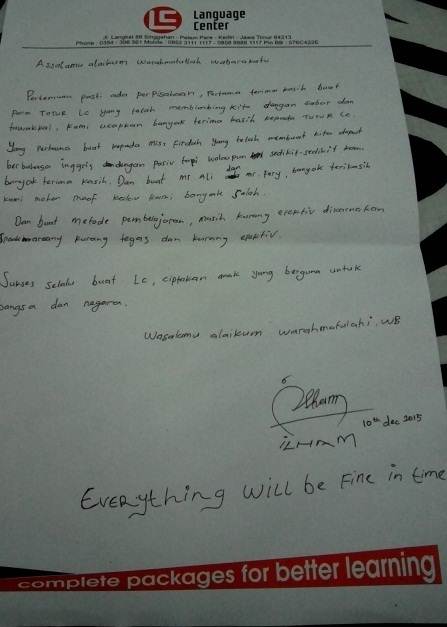 LC Language
Center
Jl. Langkat 88 Singgahan - Pelem Pare - Kediri - Jawa Timur 64213
Assalamu alaikum warahmatullah wabarakatu
Pertemuan pasti ada perpisahaan, Pertama terima kasih buat
para Tutur LC yang telah membimbing kita dangan sabar dan
tawakkal, kami ucapkan banyak terima kasih kepada Tutur LC.
Yang Pertama buat kepada miss Firdah yang telah membuat kita dapat
berbahasa inggris dengan pasiv tapi walaupun sedikit-sedikit kami
banyak terima kasih. Dan buat mr Ali dan mr. fery, banyak terikasih
kami mohon maaf kalau kami banyak salah.
Dan buat metode pembelajaran, masih kurang efektiv dikarnakan
kurang tegas dan kurang efektiv.
Sukses selalu buat Lc, ciptakan anak yang berguna untuk
bangsa dan negara.
Wasalamu alaikum warahmatulahi. WB
Ilham
10th dec 2015
ILHAM
Everything will be Fine in time
complete packages for better learning